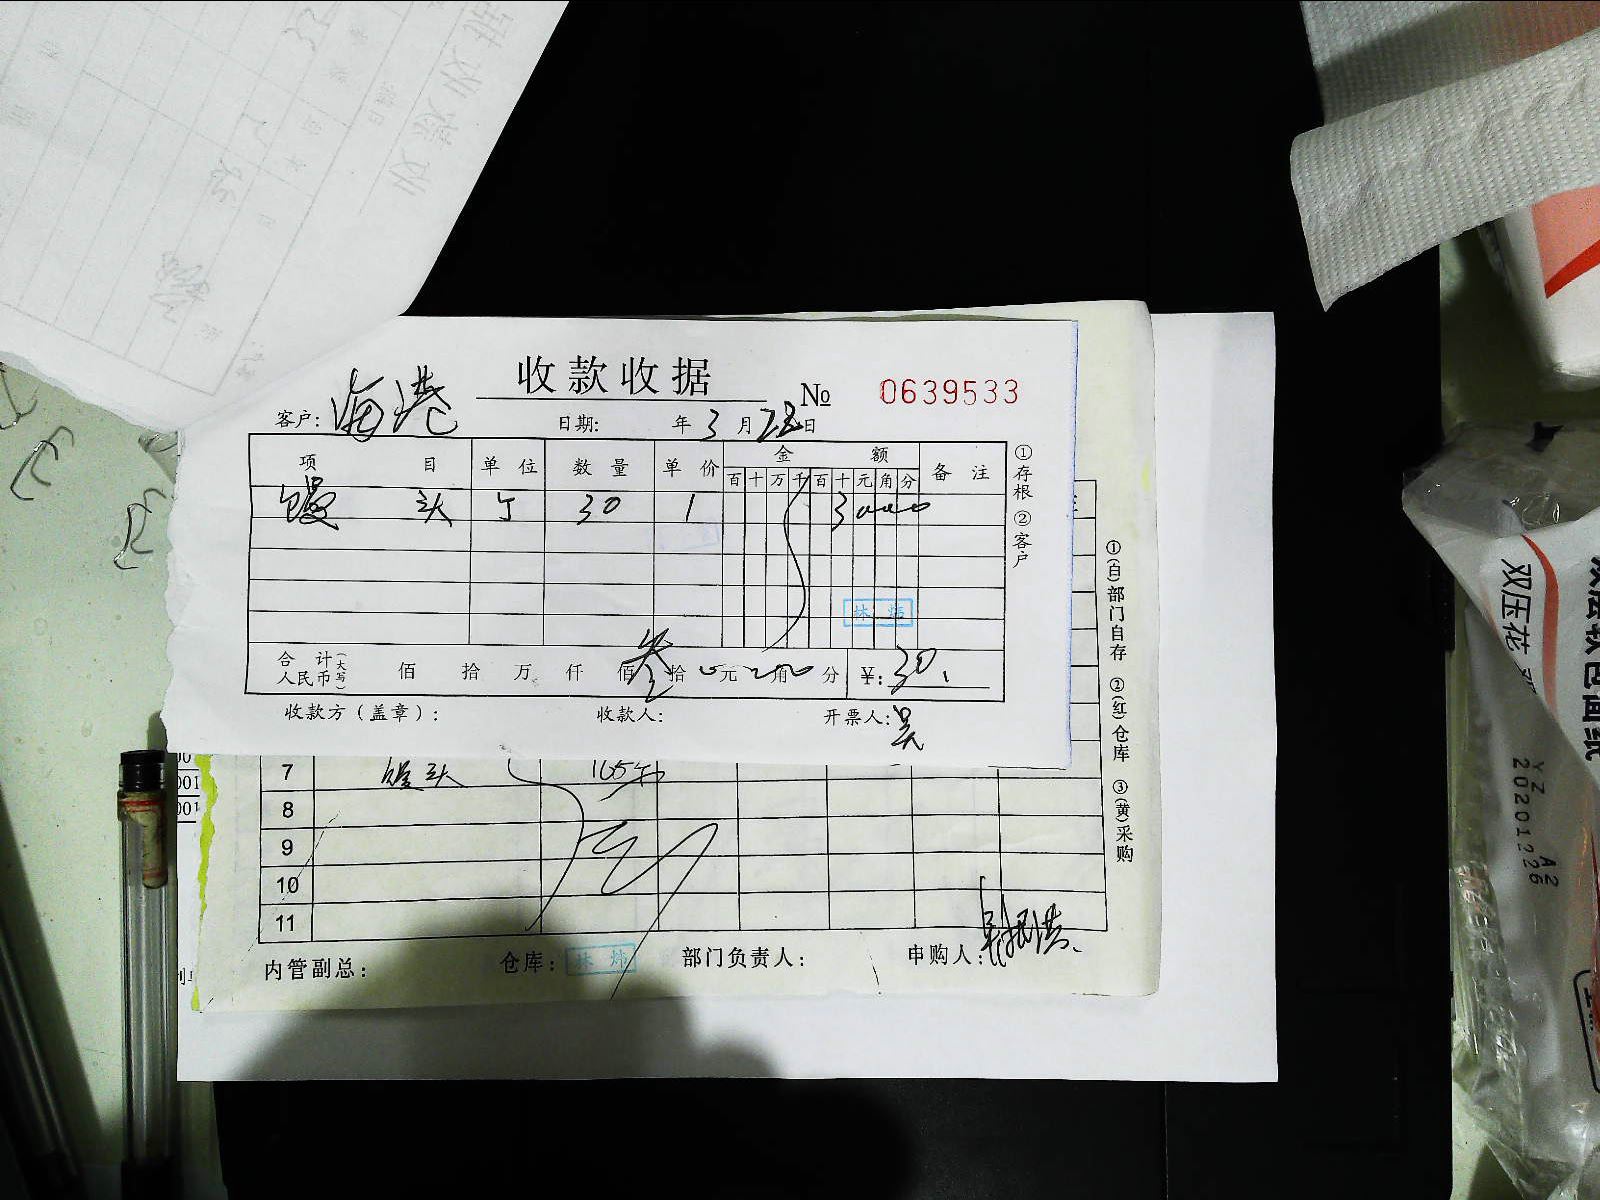 收款收据
№ 0639533
客户: 海港 日期: 年 3 月 28 日
项目 单位 数量 单价 金额 备注
百 十 万 千 百 十 元 角 分
馒头 个 30 1 3000
林炜
合计(大写) 人民币 佰 拾 万 仟 佰 叁 拾 0 元 0 角 0 分 ¥: 30.
收款方(盖章): 收款人: 开票人: 吴
①存根 ②客户
7 馒头 165个
8
9
10
11
内管副总: 仓库: 林炜 部门负责人: 申购人:
①(白)部门自存 ②(红)仓库 ③(黄)采购
双压花
YZ A2
20201226